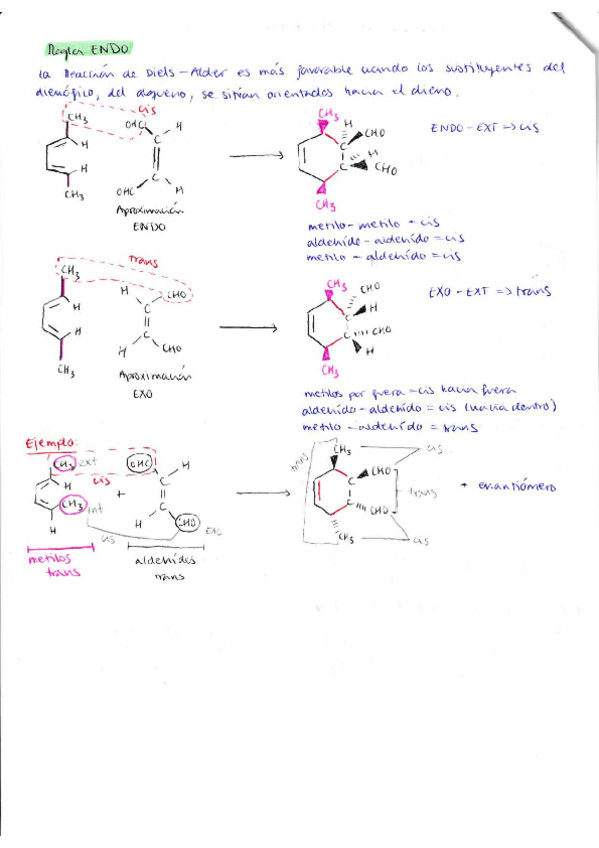 Regla ENDO
La Reacción de Diels-Alder es más favorable cuando los sustituyentes del
dienófilo, del alqueno, se sitúan orientados hacia el dieno.
cis
CH3
OHC
H
H
H
CH3
OHC
H
Aproximación
ENDO
CH3
H
CHO
C
H
C
CHO
CH3
ENDO-EXT => cis
metilo-metilo = cis
aldehído-aldehído = cis
metilo-aldehído = cis
trans
CH3
H
CHO
H
C
H
C
H
CHO
CH3
Aproximación
EXO
CH3
CHO
H
C
C
CHO
H
CH3
EXO-EXT => trans
metilos por fuera = cis hacia fuera
aldehído-aldehído = cis (hacia dentro)
metilo-aldehído = trans
Ejemplo:
CH3 ext
OHC
H
H
cis
C
CH3
int
+
C
H
H
CHO
EXO
cis
metilos
trans
aldehídos
trans
trans
CH3
cis
C
CHO
trans
C
CHO
CH3
cis
+ enantiómero